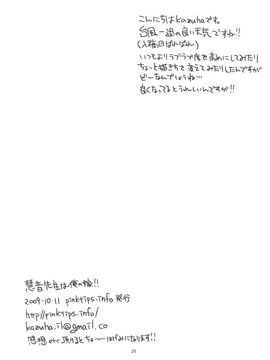 こんにちはkazuhaです。
台風一過の良い天気ですね!!
(入稿日ばんばん)
いつもよりラブラブ度を高めにしてみたり
ちょっと描き方を変えてみたりしたんですが
どーなんでしょうね…
良くなってるとうれしいんですが!!
慧音先生は俺の嫁!!
2009.10.11 pinktips.info 発行
http://pinktips.info/
kazuha.il@gmail.co
感想etc 頂けるとちょ〜はげみになります!!